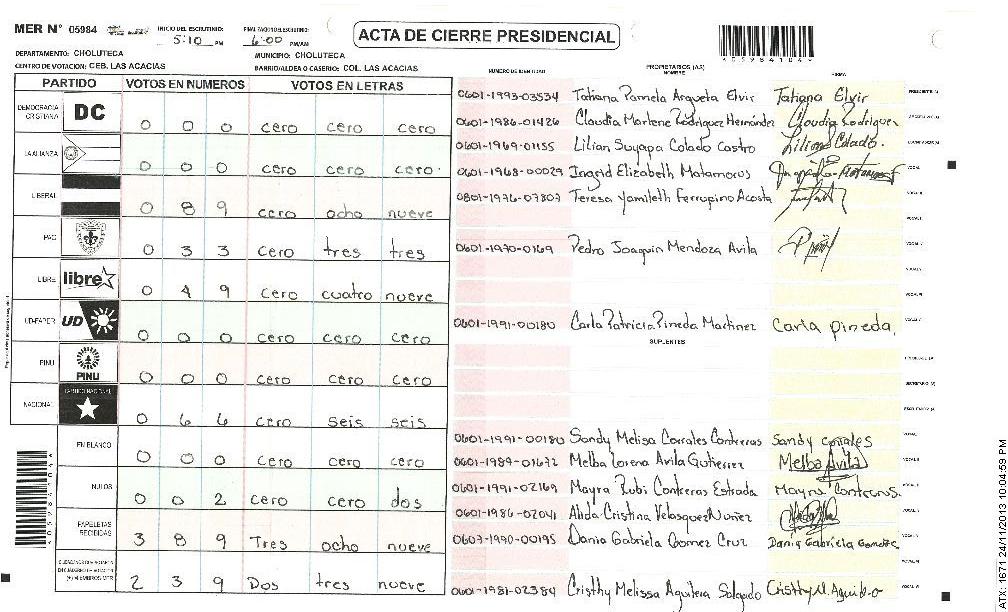 MER N° 05984
INICIO DEL ESCRUTINIO: 5:10 PM
6:00 PM/AM
ACTA DE CIERRE PRESIDENCIAL
DEPARTAMENTO: CHOLUTECA
MUNICIPIO: CHOLUTECA
CENTRO DE VOTACION: CEB. LAS ACACIAS
BARRIO/ALDEA O CASERIO: COL. LAS ACACIAS
PARTIDO VOTOS EN NUMEROS VOTOS EN LETRAS
DEMOCRACIA CRISTIANA DC 0 0 0 cero cero cero
LA ALIANZA 0 0 0 cero cero cero
LIBERAL 0 8 9 cero ocho nueve
PAC 0 3 3 cero tres tres
LIBRE libre 0 4 9 cero cuatro nueve
UD-FAPER UD 0 0 0 cero cero cero
PINU PINU 0 0 0 cero cero cero
NACIONAL PARTIDO NACIONAL 0 6 6 cero seis seis
EN BLANCO 0 0 0 cero cero cero
NULOS 0 0 2 cero cero dos
PAPELETAS RECIBIDAS 3 8 9 Tres ocho nueve
2 3 9 Dos tres nueve
NUMERO DE IDENTIDAD PROPIETARIOS (AS) NOMBRE FIRMA
0601-1993-03534 Tatiana Pamela Argueta Elvir Tatiana Elvir
0601-1986-01426 Claudia Marlene Rodriguez Hernández Claudia Rodriguez
0601-1969-01155 Lilian Suyapa Colado Castro Lilian Colado.
0601-1968-00029 Ingrid Elizabeth Matamoros
0801-1976-07807 Teresa Yamileth Ferrupino Acosta
0601-1970-0169 Pedro Joaquin Mendoza Avila
0601-1991-00180 Carla Patricia Pineda Martinez Carla pineda.
SUPLENTES
0601-1991-00180 Sandy Melisa Corrales Contreras Sandy corrales
0601-1989-01672 Melba Lorena Avila Gutierrez Melba Avila
0601-1991-02169 Mayra Rubi Contreras Estrada Mayra Contreras.
0601-1986-02041 Alida Cristina Velasquez Nuñez
0603-1990-00195 Dania Gabriela Gomez Cruz Dania Gabriela Gomez C
0601-1981-02384 Cristhy Melissa Aguilera Salgado Cristhy M. Aguile
ATX: 1671 24/11/2013 10:04:59 PM